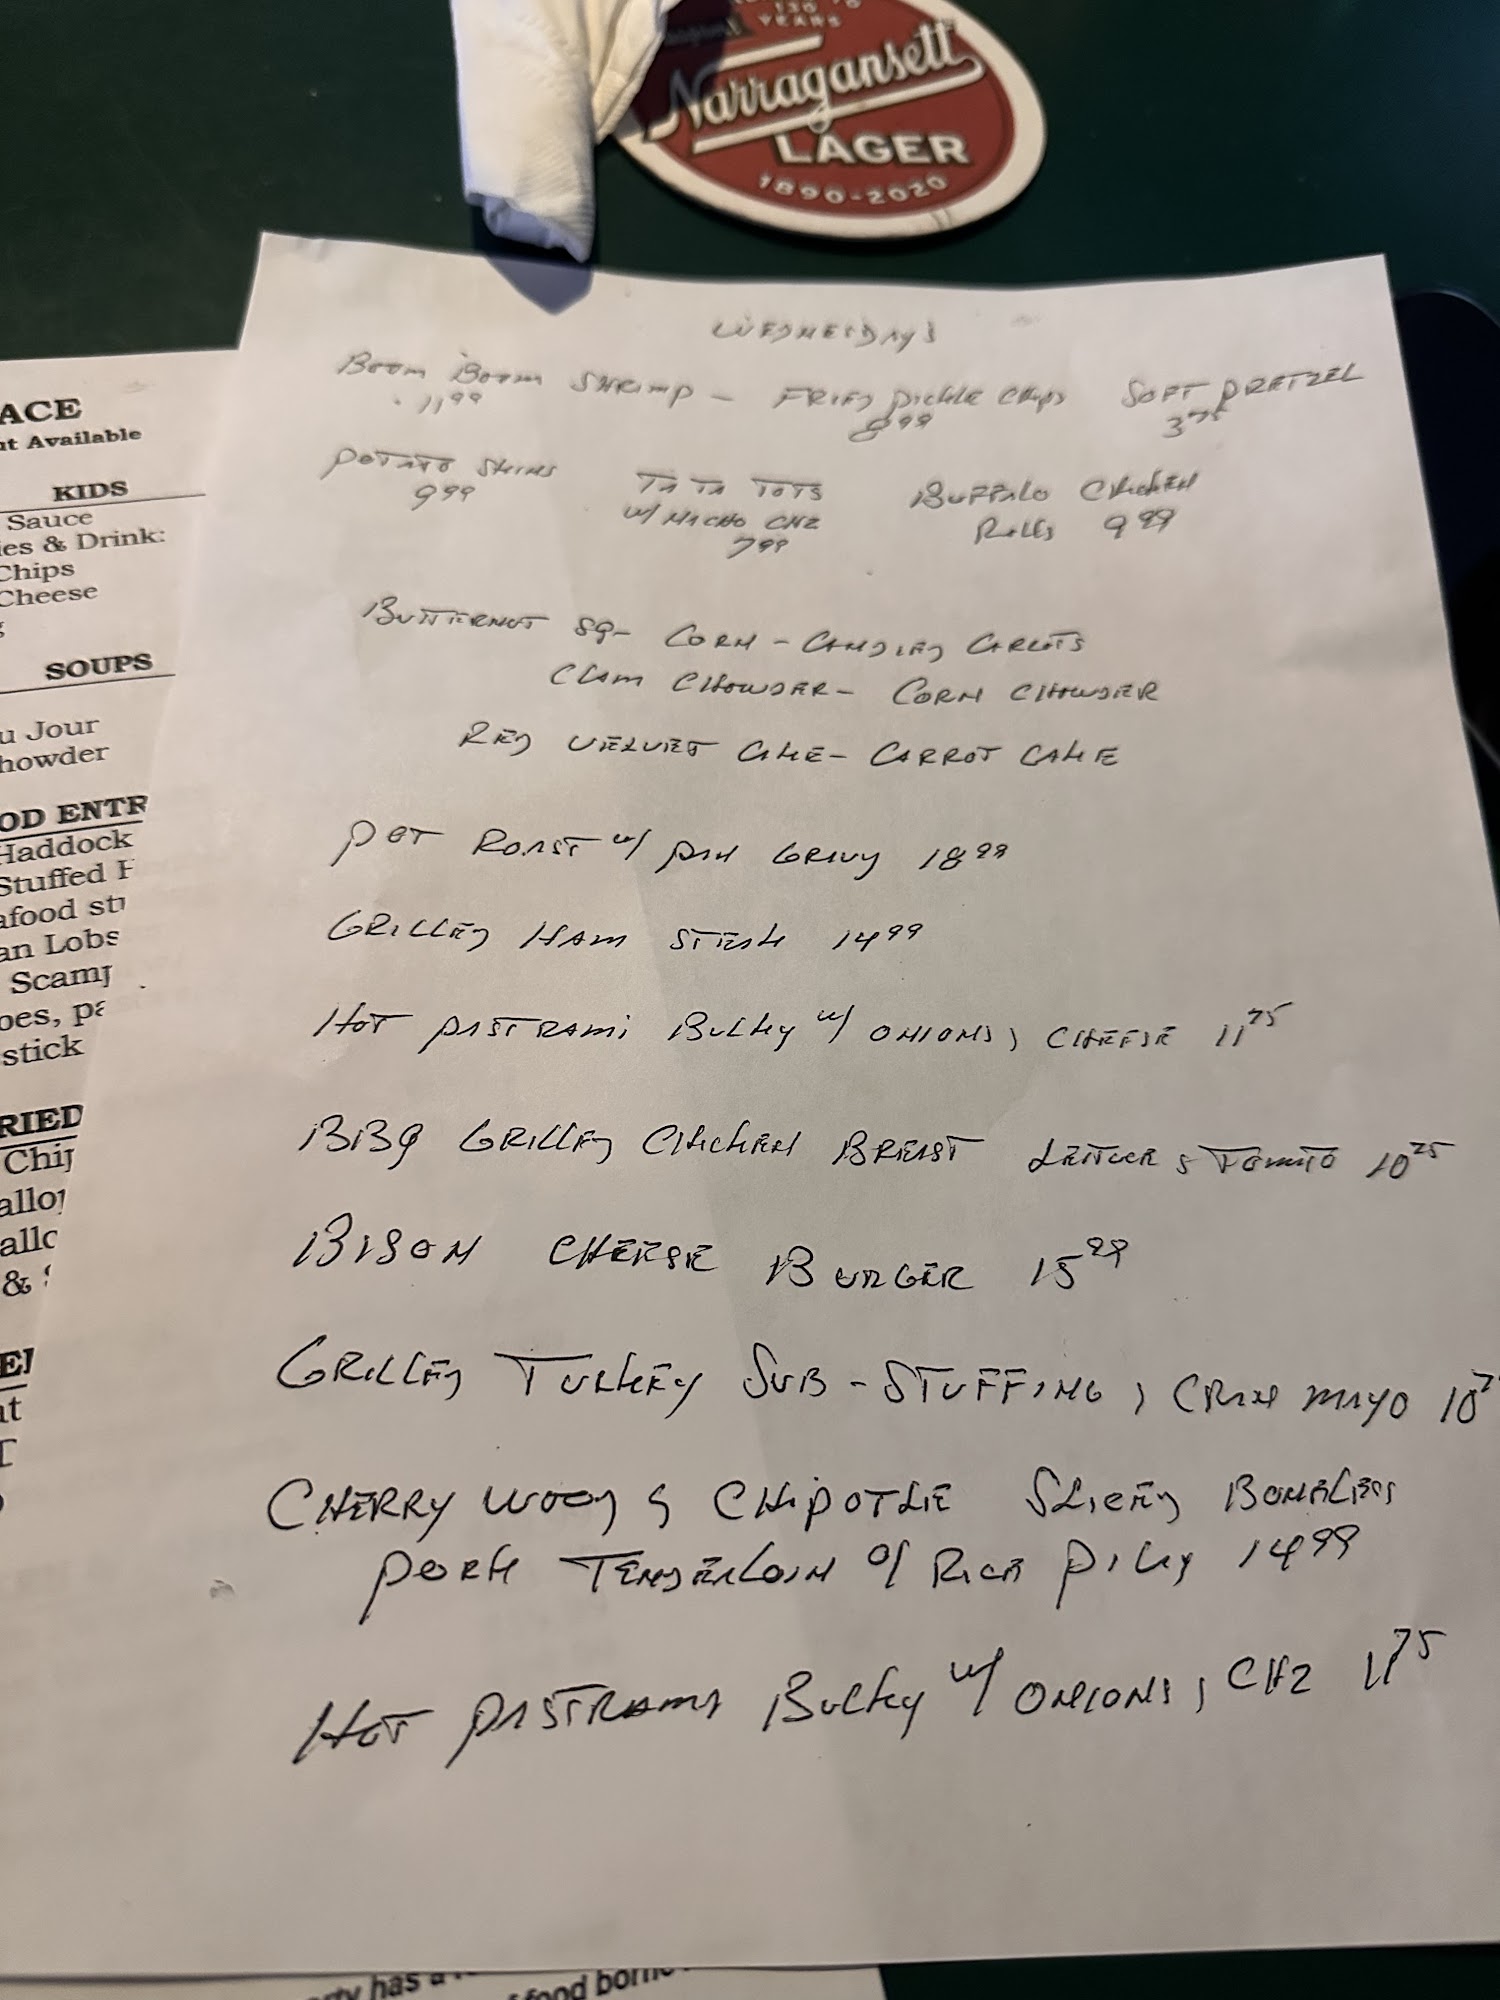 130
YEARS
Narragansett
LAGER
1890-2020
WEDNESDAYS
BOOM BOOM SHRIMP - FRIED PICKLE CHIPS SOFT PRETZEL
11 99 8 99 3 75
POTATO SKINS TA TA TOTS BUFFALO CHICKEN
9 99 W/ NACHO CHZ ROLLS 9 99
7 99
BUTTERNUT SQ - CORN - CANDIED CARROTS
CLAM CHOWDER - CORN CHOWDER
RED VELVET CAKE - CARROT CAKE
POT ROAST W/ PAN GRAVY 18 99
GRILLED HAM STEAK 14 99
HOT PASTRAMI BULKY W/ ONIONS, CHEESE 11 75
BBQ GRILLED CHICKEN BREAST LETTUCE & TOMATO 10 25
BISON CHEESE BURGER 15 99
GRILLED TURKEY SUB - STUFFING, CRAN MAYO 10
CHERRY WOOD & CHIPOTLE SLICED BONELESS
PORK TENDERLOIN O/ RICE PILAF 14 99
HOT PASTRAMI BULKY W/ ONIONS, CHZ 11 75
ACE
nt Available
KIDS
Sauce
ies & Drink:
Chips
Cheese
SOUPS
u Jour
howder
OD ENTR
Haddock
Stuffed
afood
an Lobs
Scam
oes, pa
stick
RIED
Chi
allo
allo
&
has a
food borne